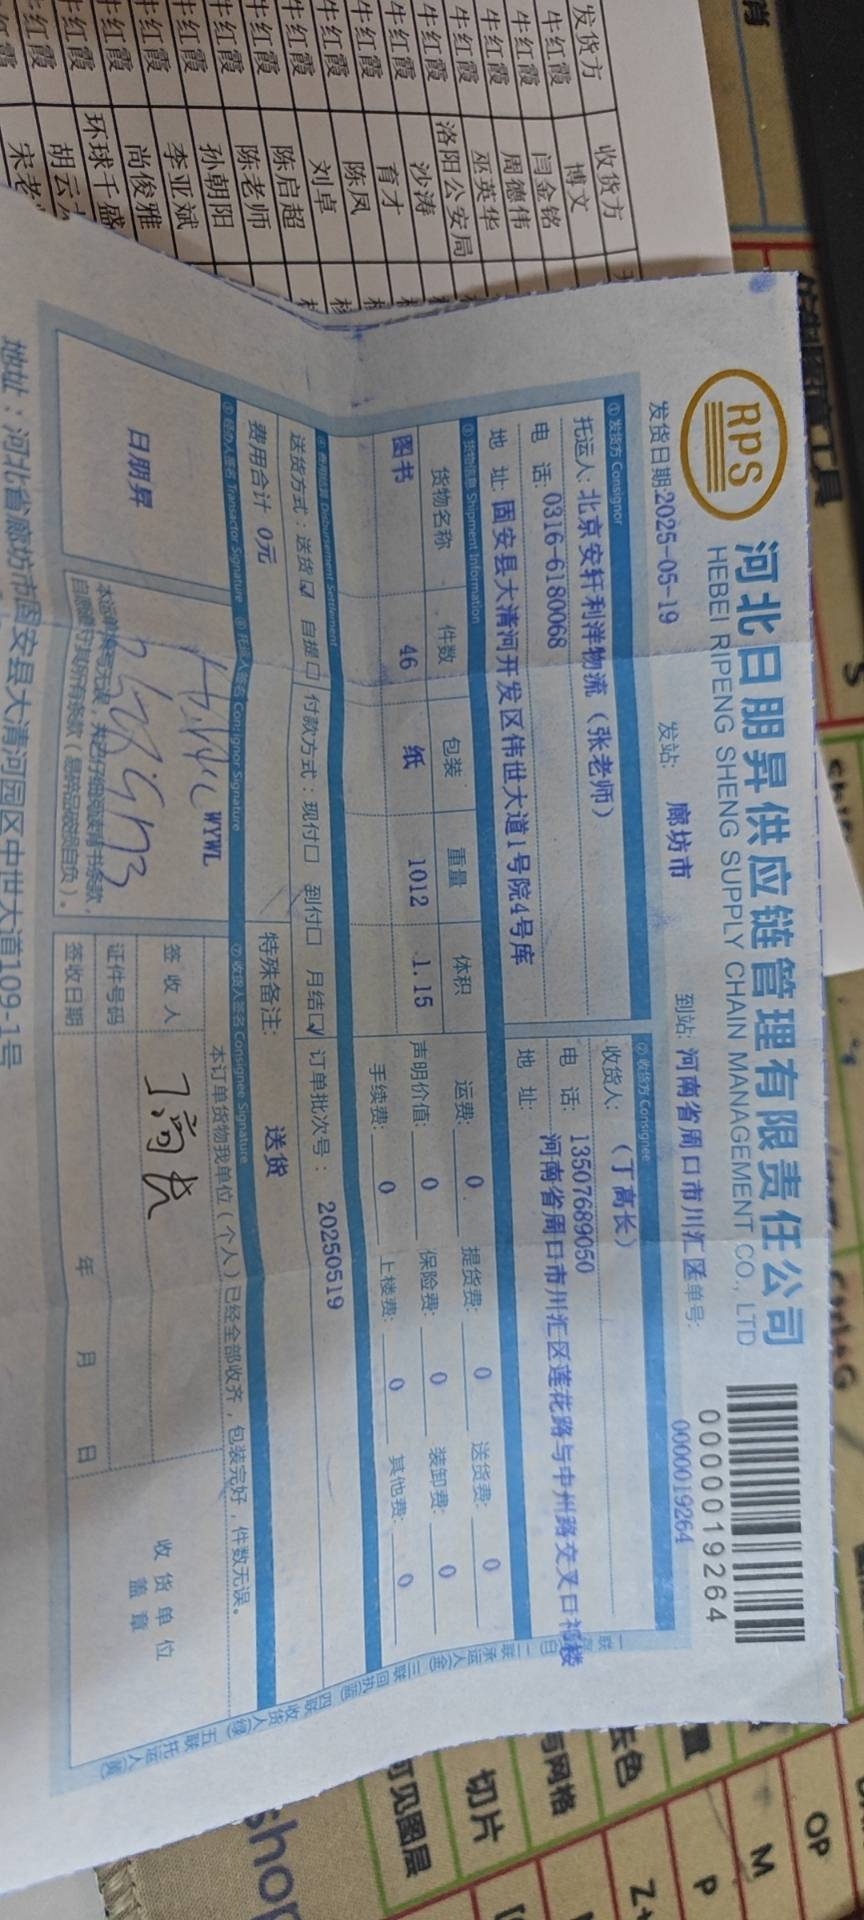 RPS
河北日朋昇供应链管理有限责任公司
HEBEI RIPENG SHENG SUPPLY CHAIN MANAGEMENT CO., LTD
0000019264
发货日期:2025-05-19 发站: 廊坊市 到站: 河南省周口市川汇区单号: 0000019264
① 发货方 Consignor ② 收货方 Consignee
托运人: 北京安轩利洋物流（张老师） 收货人: （丁高长）
电 话: 0316-6180068 电 话: 13507689050
地 址: 固安县大清河开发区伟世大道1号院4号库 地 址: 河南省周口市川汇区莲花路与中州路交叉口祁楼
③ 货物信息 Shipment Information
货物名称 件数 包装 重量 体积 运费: 0 提货费: 0 送货费: 0
图书 46 纸 1012 1.15 声明价值: 0 保险费: 0 装卸费: 0
手续费: 0 上楼费: 0 其他费: 0
Disbursement Settlement
送货方式：送货☑ 自提□ 付款方式：现付□ 到付□ 月结☑ 订单批次号： 20250519
费用合计 0元 特殊备注: 送货
⑤ 经办人签名 Transactor Signature ⑥ 托运人签名 Consignor Signature ⑦ 收货人签名 Consignee Signature
日朋昇
WYWL
本订单货物我单位（个人）已经全部收齐，包装完好，件数无误。
签 收 人 丁高长
证件号码
签收日期 年 月 日
收货单位
盖章
地址：河北省廊坊市固安县大清河园区中世大道109-1号
发货方 收货方
牛红霞 博文
牛红霞 闫金铭
牛红霞 周德伟
牛红霞 巫英华
牛红霞 洛阳公安局
牛红霞 沙涛
牛红霞 育才
牛红霞 陈凤
牛红霞 刘卓
牛红霞 陈启超
牛红霞 陈老师
牛红霞 孙朝阳
牛红霞 李亚斌
尚俊雅
环球千盛
胡云
宋老
切片
可见图层
与网格
OP
M
P
Z+
shop